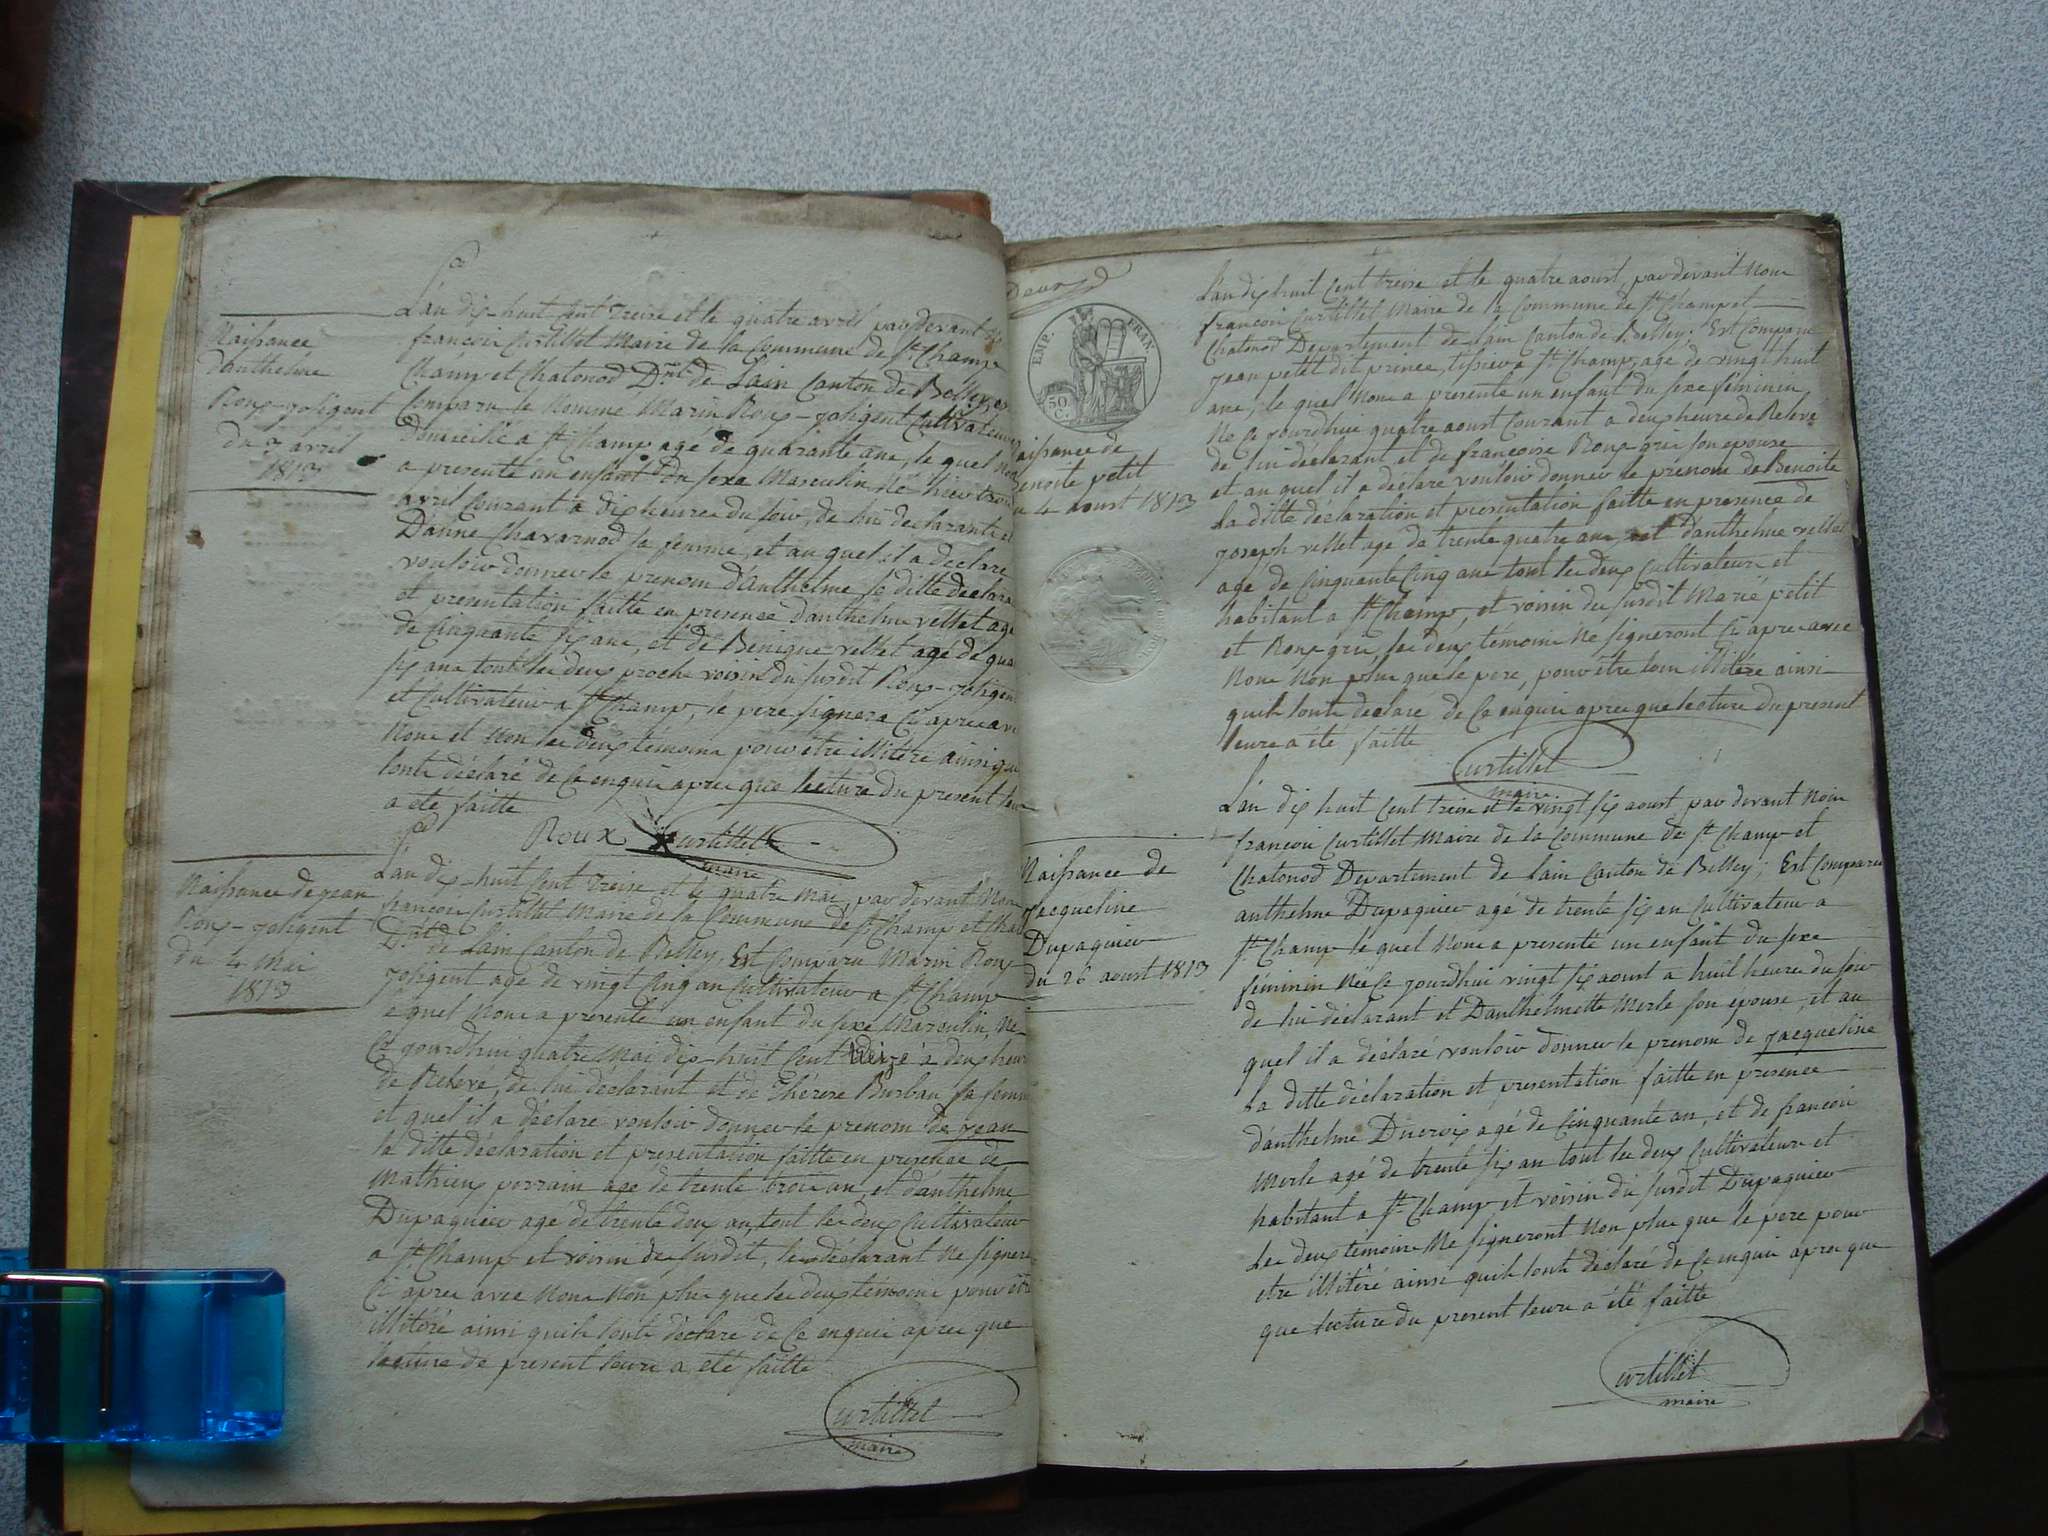 Naissance
d'anthelme
Roux-joligent
du 3 avril
1813
L'an dix-huit cent treize et le quatre avril pardevant
françois Curtillet Maire de la Commune de St Champ
Champ et Chatonod Dmt de Lain Canton de Belley, est
Comparu le Nommé Marin Roux-joligent Cultivateur
Domicilié a St Champ agé de quarante ans, le quel Nous
a presenté un enfant du sexe Masculin Né hier trois
avril Courant a dix heures du soir, de lui declarant et
Danne Chavarnod sa femme, et au quel il a declaré
vouloir donner le prenom d'anthelme la ditte declara
et presentation faitte en presence d'anthelme vettet agé
de Cinquante six ans, et de Benigne vettet agé de qua
six ans tout les deux proche voisin du susdit Roux-joligent
et Cultivateur a St Champ, le pere signera Ci apres avec
Nous et Non les deux témoins pour être illitéré ainsi qu
lonts déclaré de Ce enquis apres que lecture du present leur
a eté faitte
Roux Curtillet
maire
Naissance de jean
Roux-joligent
du 4 Mai
1813
L'an dix-huit Cent treize et le quatre Mai, pardevant Nous
françois Curtillet Maire de la Commune de St Champ et Chat
Dmt de Lain Canton de Belley, Est Comparu Marin Roux
joligent agé de vingt Cinq ans Cultivateur a St Champ
le quel Nous a presenté un enfant du sexe Masculin, Né
Ce jourdhui quatre Mai dix-huit Cent treize a deux heures
de Relevé, de lui déclarant et de Thérèse Burban sa femme
et quel il a déclaré vouloir donner le prenom de jean
la ditte déclaration et presentation faitte en presence de
Mathieux porrain agé de trente trois an, et d'anthelme
Dupaquier agé de trente deux an, tout les deux Cultivateur
a St Champ et voisin du susdit, le déclarant Ne signera
Ci apres avec Nous Non plus que les deux témoins pour être
illitéré ainsi quils lonts déclaré de Ce enquis apres que
lecture de present leurs a eté faitte
Curtillet
maire
Deux
EMP. FRAN.
50
C.
Naissance de
Benoite petit
du 4 aoust 1813
L'an dix huit Cent treize et le quatre aoust, pardevant Nous
françois Curtillet Maire de la Commune de St Champ et
Chatonod Departement de Lain Canton de Belley; Est Comparu
jean petit dit prince, tissier a St Champ, agé de vingt huit
ans, le quel Nous a presenté un enfant du sexe féminin
Né Ce jourdhui quatre aoust Courant a deux heures de Relevé
de lui declarant et de francoise Roux-gris son epouse
et au quel il a declaré vouloir donner le prenom de Benoite
La ditte déclaration et presentation faitte en presence de
joseph vettet agé de trente quatre ans, et d'anthelme vettet
agé de Cinquante Cinq ans tout les deux Cultivateurs et
habitant a St Champ, et voisin du susdit Marié petit
et Roux gris, les deux témoins Ne signeront Ci apres avec
Nous Non plus que le pere, pour être tous illitéré ainsi
quils lonts declaré de Ce enquis apres que lecture du present
leurs a eté faitte
Curtillet
maire
Naissance de
Jacqueline
Dupaquier
du 26 aoust 1813
L'an dix huit Cent treize et le vingt six aoust pardevant Nous
françois Curtillet Maire de la Commune de St Champ et
Chatonod Departement de Lain Canton de Belley; Est Comparu
anthelme Dupaquier agé de trente six an Cultivateur a
St Champ le quel Nous a presenté un enfant du sexe
féminin Née Ce jourdhui vingt six aoust a huit heures du soir
de lui déclarant et Danthelmette Merle son epouse, et au
quel il a déclaré vouloir donner le prenom de jacqueline
La ditte déclaration et presentation faitte en presence
d'anthelme Ducroix agé de Cinquante an, et de françois
Merle agé de trente six an tout les deux Cultivateurs et
habitant a St Champ et voisin du susdit Dupaquier
Les deux témoins Ne signeront Non plus que le pere pour
etre illitéré ainsi quils lonts declaré de Ce enquis apres que
que lecture du present leurs a été faitte
Curtillet
maire